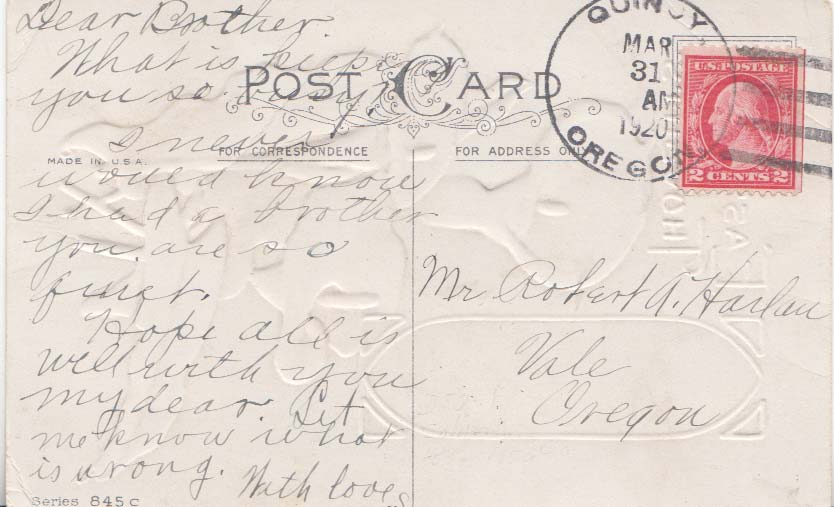 Dear Brother.
What is keep
you so busy
I never
would know
I had a brother
you are so
quiet.
Hope all is
well with you
my dear. Let
me know what
is wrong.
With love
POST CARD
MADE IN U.S.A.
FOR CORRESPONDENCE
FOR ADDRESS ONLY
QUINCY,
MAR
31
AM
1920
OREGON
U.S. POSTAGE
2 CENTS 2
Mr. Robert A. Harlan
Vale
Oregon
Series 845 C